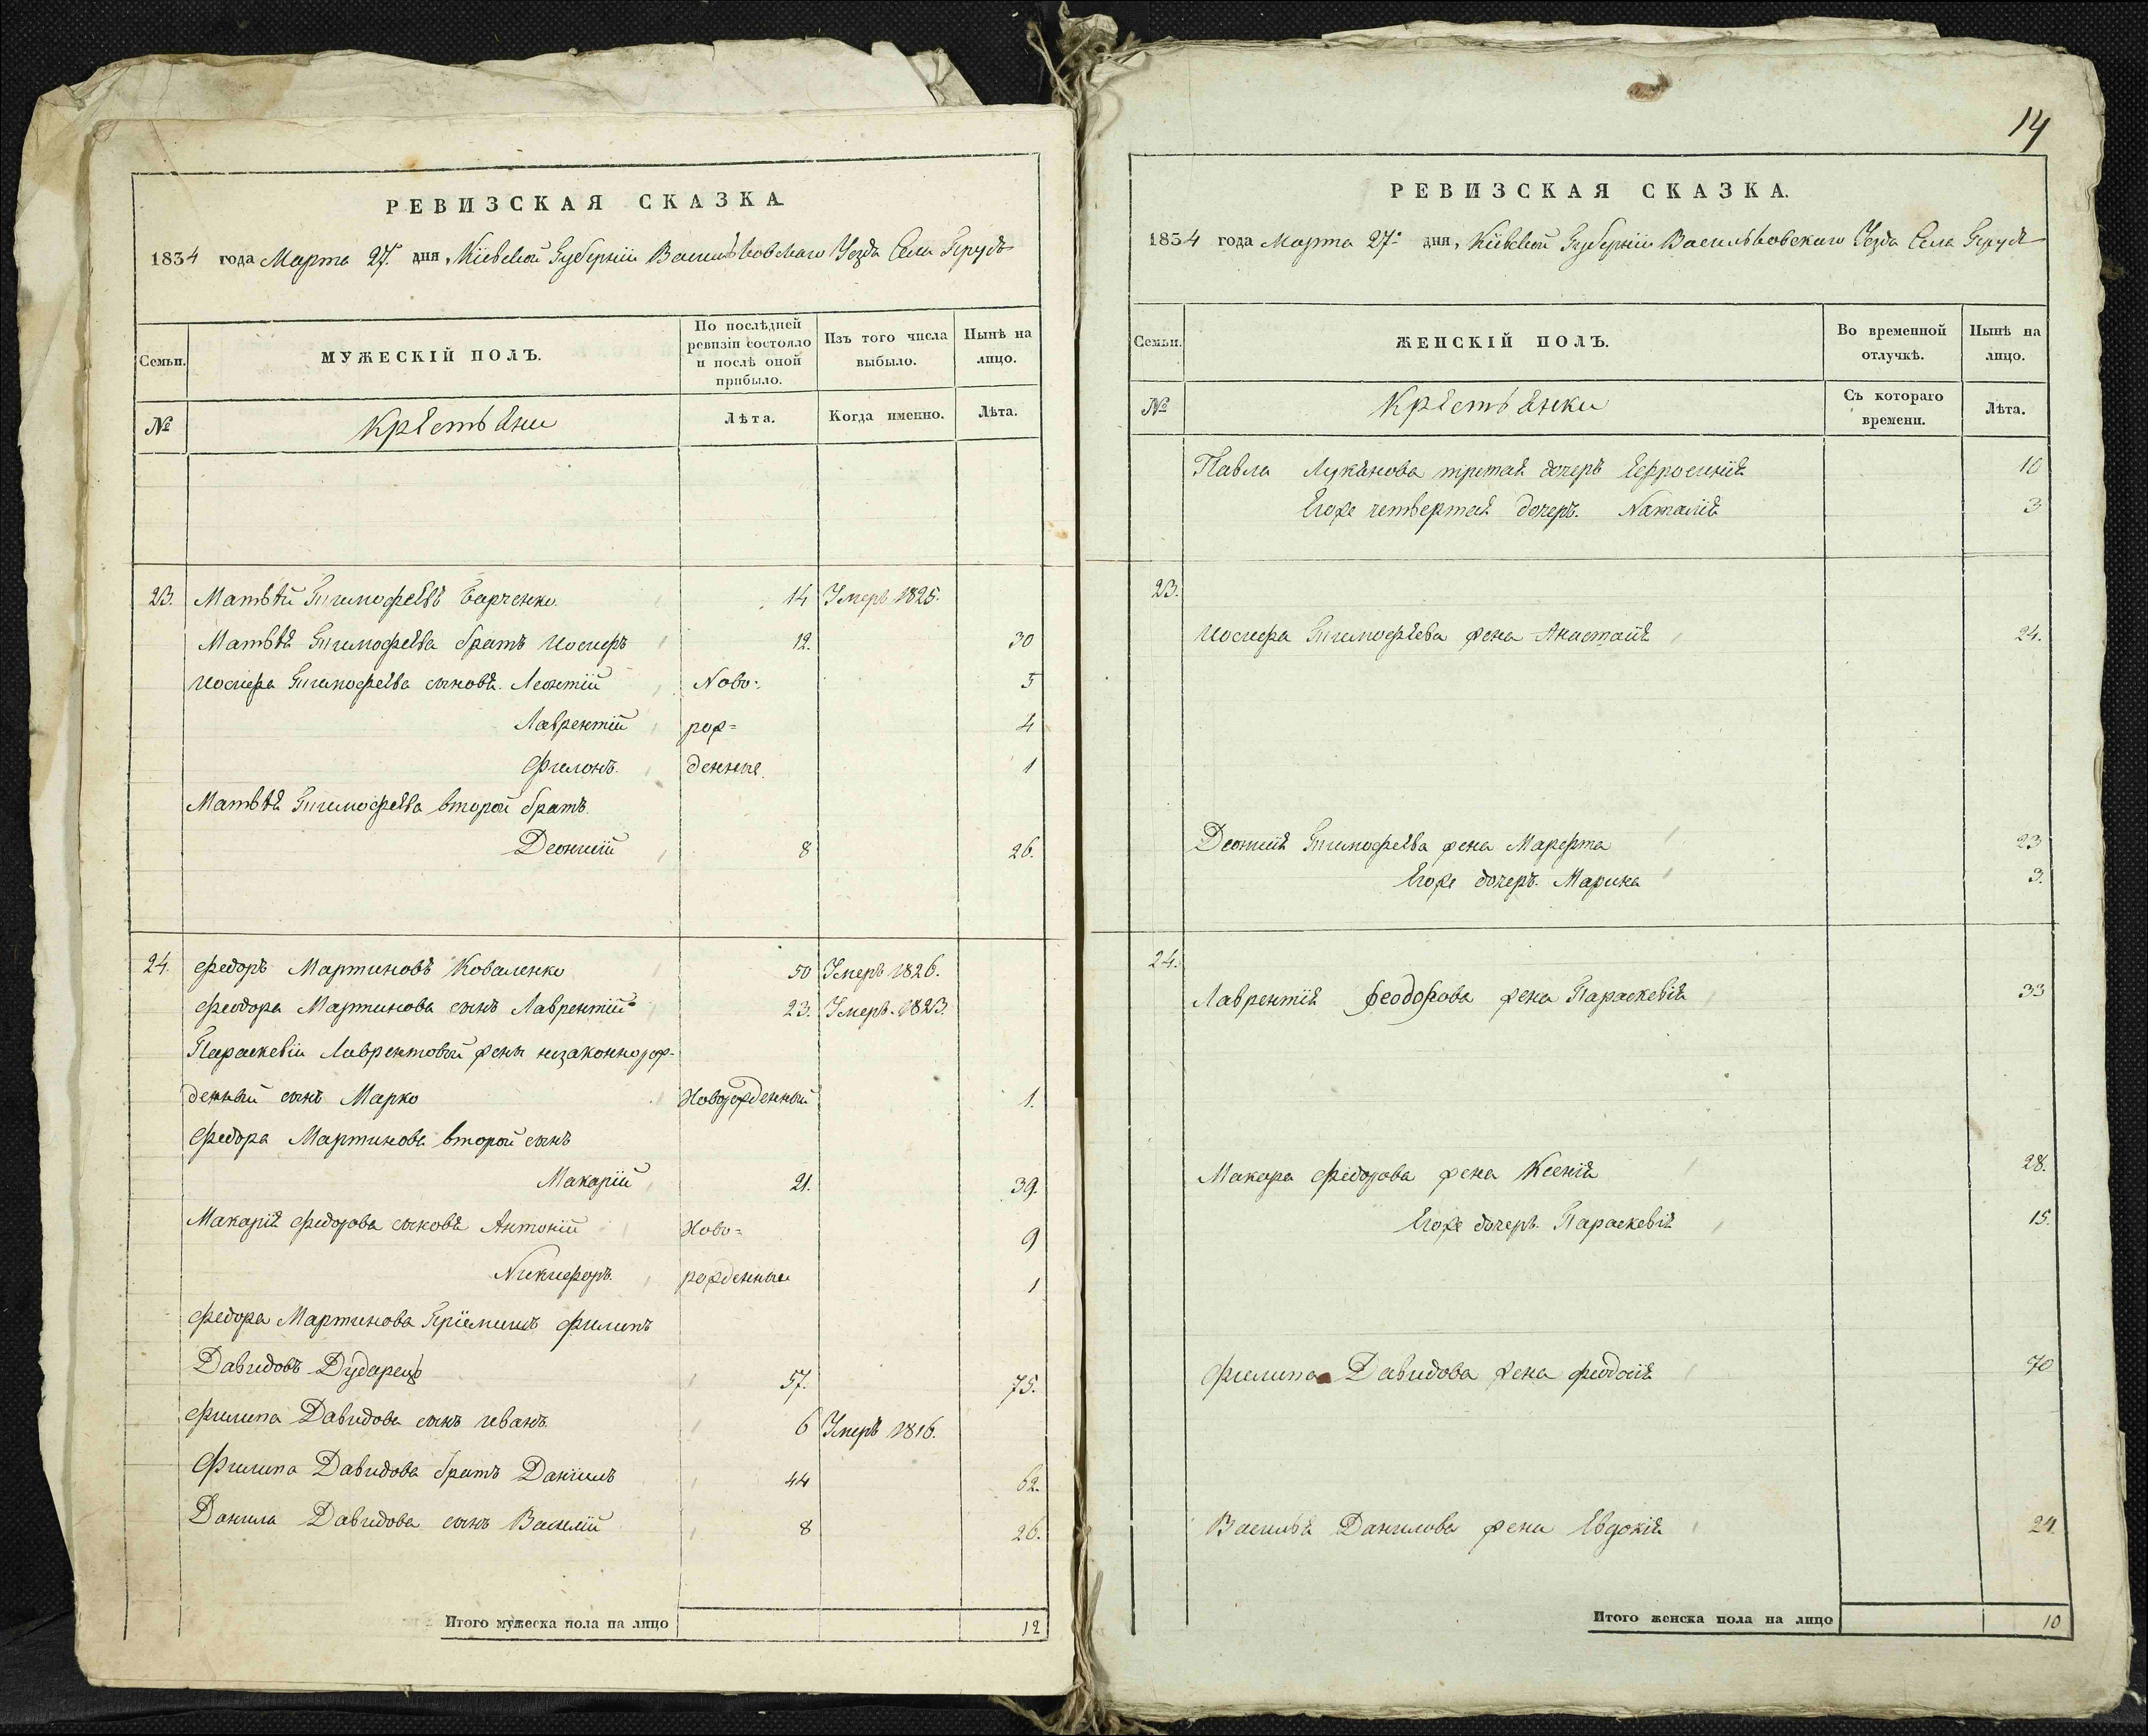 РЕВИЗСКАЯ СКАЗКА
1834 года Марта 27го дня, Кіевской Губерніи Васильковскаго Уезда Села Пруд
Семьи. МУЖЕСКІЙ ПОЛЪ. По послѣдней ревизіи состояло и послѣ оной прибыло. Изъ того числа выбыло. Нынѣ на лицо.
№ Крестьяни Лѣта. Когда именно. Лѣта.
23. Матвѣй Тимофеевъ Барченко 14 Умеръ 1825.
Матвѣя Тимофеева братъ Иосифъ 12. 30
Иосифа Тимофеева сыновя. Леонтій Ново- 5
Лаврентій рож= 4
Филонъ. денные. 1
Матвѣя Тимофеева второй братъ.
Деонисій 8 26.
24. Федоръ Мартиновъ Коваленко 50 Умеръ 1826.
Феодора Мартинова сынъ Лаврентій 23. Умеръ 1823.
Параскевіи Лаврентовой жены незаконнорож-
денный сынъ Марко Новорожденный 1.
Федора Мартинова второй сынъ
Макарій 21. 39.
Макарія Федорова сыновя Антоній Ново= 9
Никифоръ. рожденные 1
Федора Мартинова Пріемишъ Филипъ
Давидовъ Дударець 57. 75.
Филипа Давидова сынъ иванъ. 6 Умеръ 1816.
Филипа Давидова братъ Даніилъ 44 62.
Данила Давидова сынъ Василій 8 26.
Итого мужеска пола на лицо 12
14
РЕВИЗСКАЯ СКАЗКА.
1834 года Марта 27го дня, Кіевской Губерніи Васильковскаго Уезда Села Пруд
Семьи. ЖЕНСКІЙ ПОЛЪ. Во временной отлучкѣ. Нынѣ на лицо.
№ Крестьянки Съ котораго времени. Лѣта.
Павла Лукянова третая дочерь Ефросинія 10
Егоже четвертая дочерь. Наталія 3
23.
Иосифа Тимофеева жена Анастасія 24.
Деонисія Тимофеева жена Марфта 23
Егоже дочерь. Марина 3.
24.
Лаврентія Феодорова жена Параскевія 33
Макара Федорова жена Ксенія 28.
Егоже дочерь Параскевія 15.
Филипа Давидова жена Феодосія 70
Василья Данилова жена Евдокія 24.
Итого женска пола на лицо 10